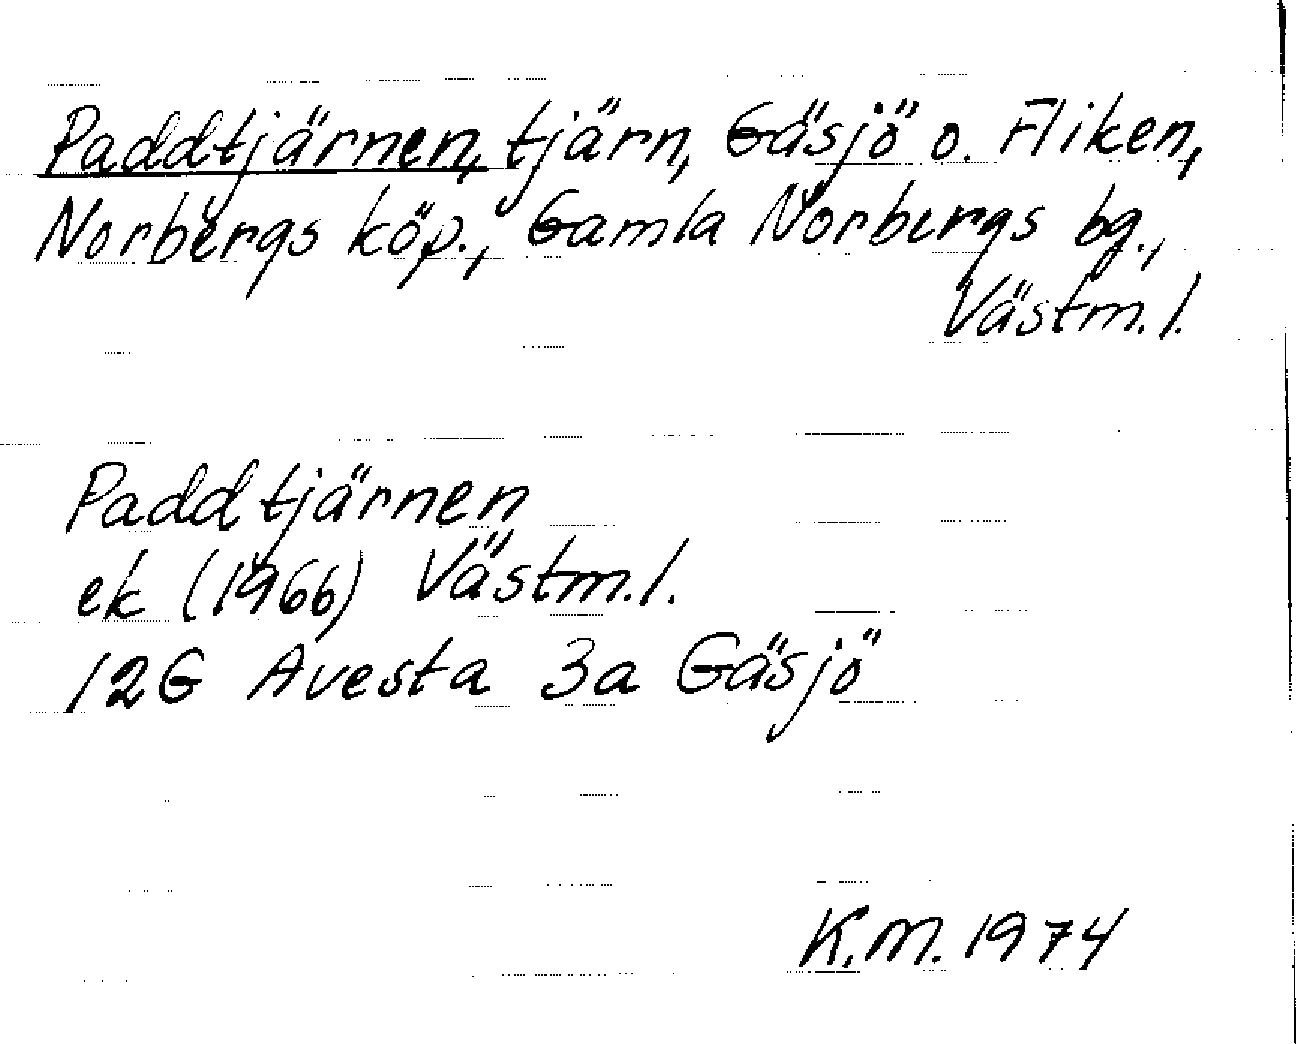 Paddtjärnen, tjärn, Gäsjö o. Fliken,
Norbergs köp., Gamla Norbergs bg.,
Västm.l.
Paddtjärnen
ek (1966) Västm.l.
12G Avesta 3a Gäsjö
K.M. 1974